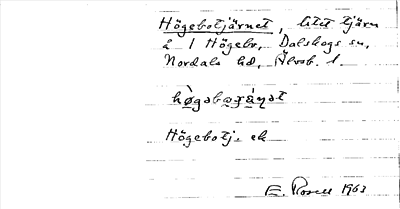 Högebotjärnet, litet tjärn
å 1 Högebo, Dalskogs sn,
Nordals hd, Älvsb. l.
Högebotj. ek
E. Rosell 1963